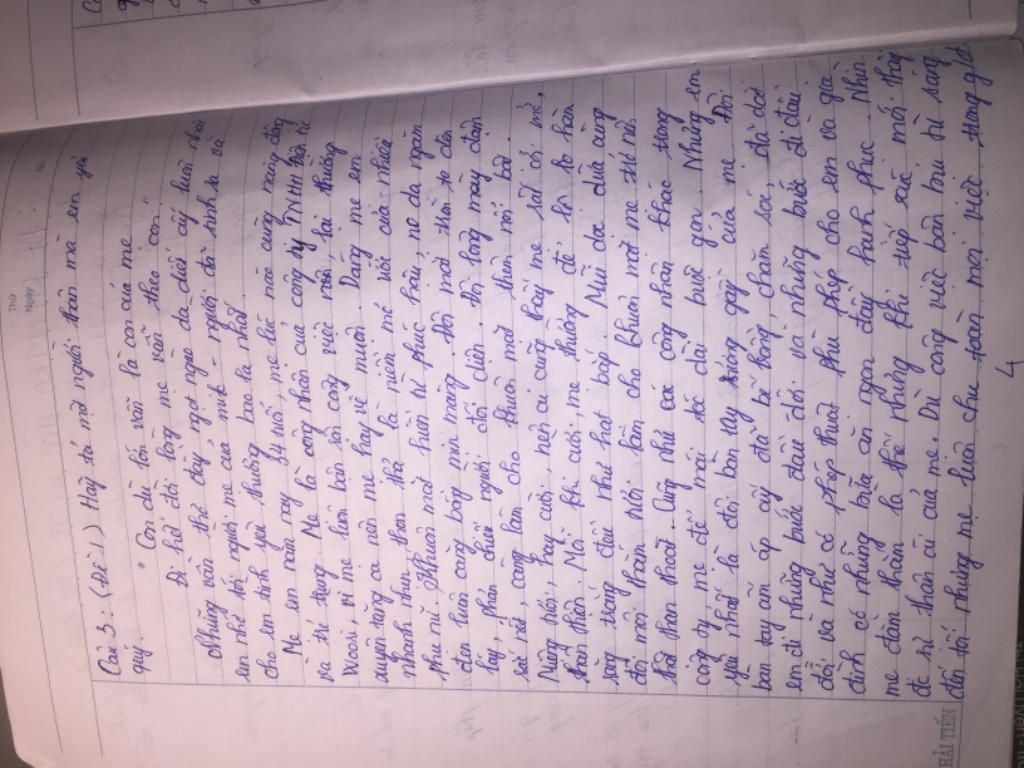 Thứ
Ngày
No.
Câu 3: (Đề 1) Hãy tả một người thân mà em yêu
quý.
" Con dù lớn vẫn là con của mẹ
Đi hết đời lòng mẹ vẫn theo con "
Những vần thơ đầy, ngọt ngào da diết ấy luôn nhắc
em nhớ tới người mẹ của mình - người đã sinh ra và
cho em tình yêu thương bao la nhất.
Mẹ em năm nay 34 tuổi, mẹ lúc nào cũng năng động
và trẻ trung. Mẹ là công nhân của công ty TNHH
Wooin, vì mẹ luôn bận rộn công việc nên, lại thường
xuyên tăng ca nên mẹ hay về muộn. Dáng mẹ em
nhanh nhẹn, thon thả là niềm mê với của nhiều
phụ nữ. Khuôn mặt hiền từ phúc hậu, nước da ngăm
đen luôn căng bóng mịn màng. Đôi mắt thì to đen
láy, phản chiếu người đối diện. Đôi lông mày đậm
sắc nét, càng làm cho khuôn mặt thêm nổi bật.
Miệng thì, hay cười, nên ai cũng bảo mẹ số cởi mở,
thân thiện. Mỗi khi cười, mẹ thường để lộ ra hàm
răng trắng đều như hạt bắp. Mũi dọc dừa cùng
đôi môi thoắn hồng làm cho khuôn mặt mẹ thu hút.
thật thon thoắt. Cũng như các công nhân khác trong
công ty, mẹ để mái tóc dài buộc gọn. Nhưng em
yêu nhất là đôi bàn tay xương gầy của mẹ. Đôi
bàn tay ấm áp ấy đã bế bồng, chăm sóc, đã dắt
em đi những bước đầu đời và những bước đi đầu
đời và như có phép thuật phù phép cho em và gia
đình có những bữa ăn ngon đầy hạnh phúc. Nhìn
mẹ đảm thang là thế nhưng khi tiếp xúc mới thấy
độ sự thân ái của mẹ. Dù công việc bận bịu từ sáng
đến tối nhưng mẹ luôn chu toàn mọi việc trong gđ
HẢI TIẾN
4